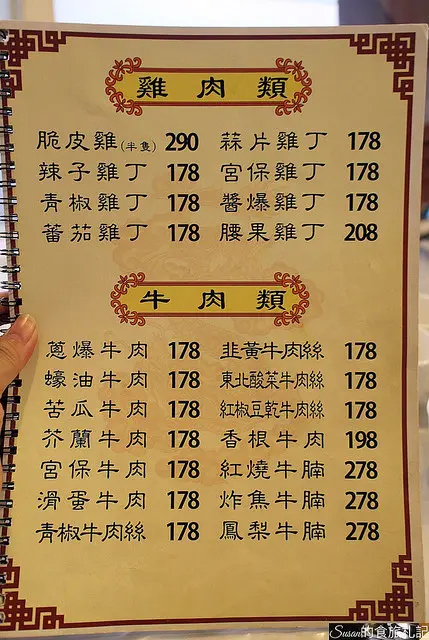 雞肉類
脆皮雞(半隻) 290 蒜片雞丁 178
辣子雞丁 178 宮保雞丁 178
青椒雞丁 178 醬爆雞丁 178
蕃茄雞丁 178 腰果雞丁 208
牛肉類
蔥爆牛肉 178 韭黃牛肉絲 178
蠔油牛肉 178 東北酸菜牛肉絲 178
苦瓜牛肉 178 紅椒豆乾牛肉絲 178
芥蘭牛肉 178 香根牛肉 198
宮保牛肉 178 紅燒牛腩 278
滑蛋牛肉 178 炸焦牛腩 278
青椒牛肉絲 178 鳳梨牛腩 278
Susan的食旅札記